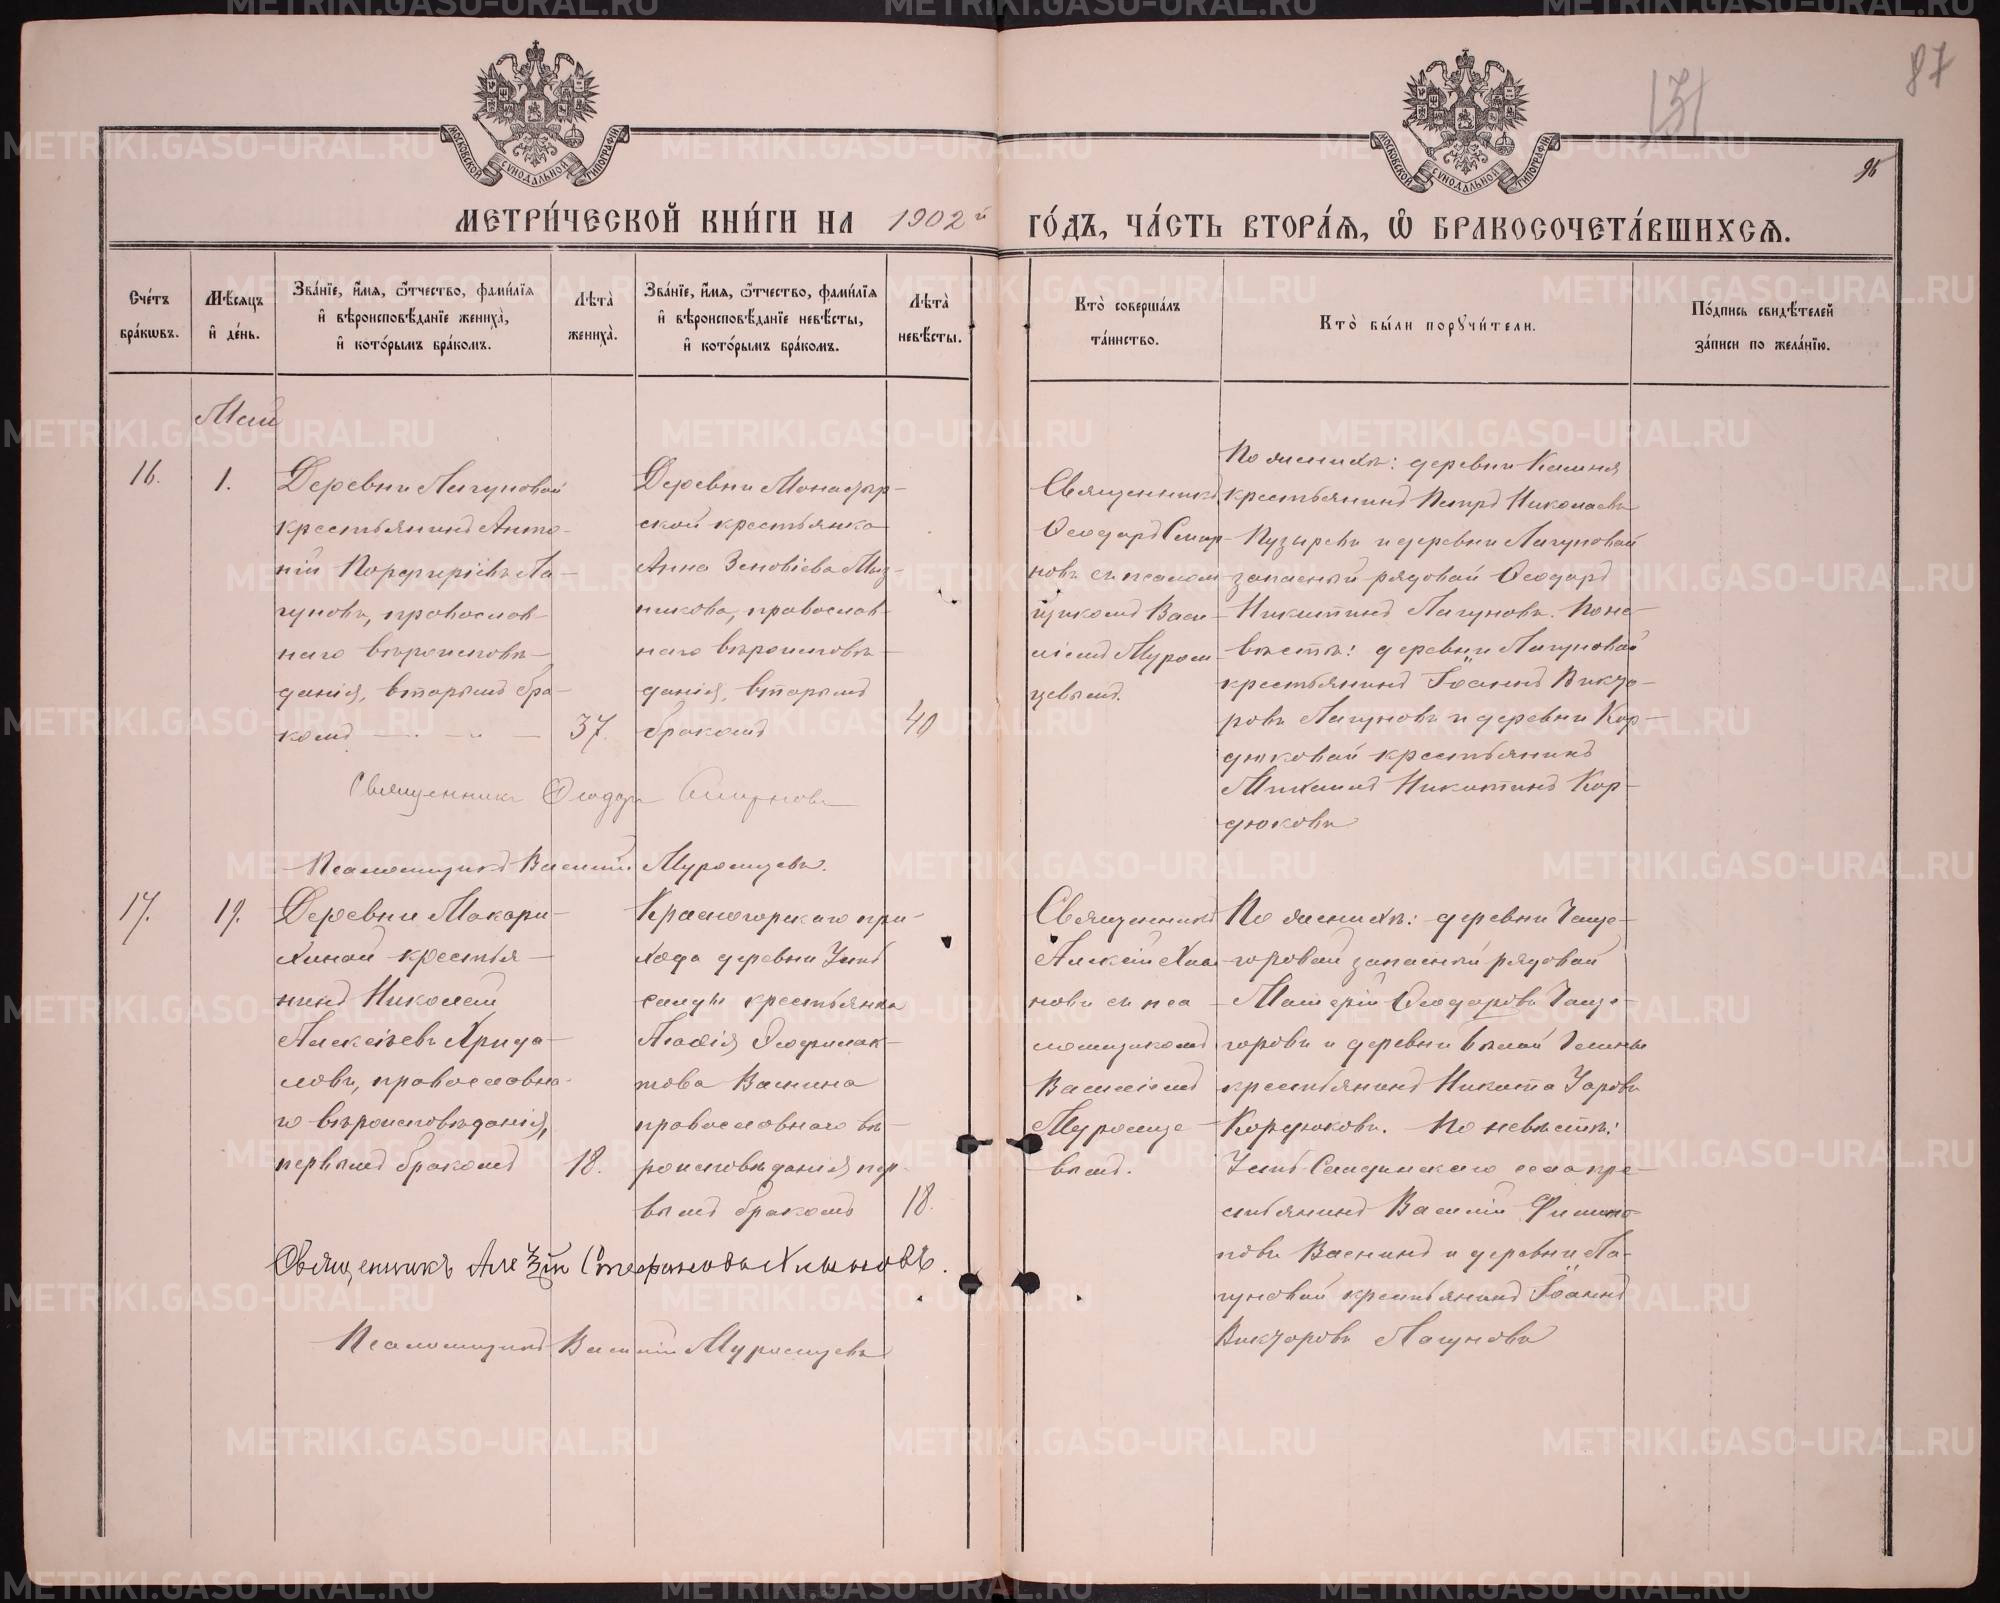 87
131
95
МОСКОВСКОЙ СѴНОДАЛЬНОЙ ТИПОГРАФІИ
МОСКОВСКОЙ СѴНОДАЛЬНОЙ ТИПОГРАФІИ
МЕТРИ́ЧЕСКОЙ КНИ́ГИ НА 1902й ГО́ДЪ, ЧА́СТЬ ВТОРА́Ѧ, Ѡ҆ БРАКОСОЧЕТА́ВШИХСѦ.
Сче́тъ бра́кѡвъ.
Мѣ́сѧцъ и҆ де́нь.
Зва́нїе, и҆́мѧ, ѻ҆́тчество, фами́лїѧ и҆ вѣроисповѣ́данїе жениха̀, и҆ кото́рымъ бра́комъ.
Лѣта̀ жениха̀.
Зва́нїе, и҆́мѧ, ѻ҆́тчество, фами́лїѧ и҆ вѣроисповѣ́данїе невѣ́сты, и҆ кото́рымъ бра́комъ.
Лѣта̀ невѣ́сты.
Кто̀ соверша́лъ та́инство.
Кто̀ бы́ли порꙋчи́тели.
По́дпись свидѣ́телей за́писи по жела́нїю.
Май
16.
1.
Деревни Лагуновой
крестьянинъ Анто-
ній Порфиріевъ Ла-
гуновъ, православ-
наго вѣроисповѣ-
данія, вторымъ бра-
комъ
37.
Деревни Монастыр-
ской крестьянка
Анна Зеновіева Мыз-
никова, православ-
наго вѣроисповѣ-
данія, вторымъ
бракомъ
40
Священникъ
Ѳеодоръ Смир-
новъ съ псалом-
щикомъ Васи-
ліемъ Муром-
цевымъ.
По женихѣ: деревни Камня
крестьянинъ Петръ Николаевъ
Пузыревъ и деревни Лагуновой
запасный рядовой Ѳеодоръ
Никитинъ Лагуновъ. По не-
вѣстѣ: деревни Лагуновой
крестьянинъ Іоаннъ Викто-
ровъ Лагуновъ и деревни Кор-
дюковой крестьянинъ
Михаилъ Никитинъ Кор-
дюковъ
Священникъ Ѳеодоръ Смирновъ
Псаломщикъ Василій Муромцевъ.
17.
19.
Деревни Макари-
хиной крестья-
нинъ Николай
Алексѣевъ Хрида-
ловъ, православна-
го вѣроисповѣданія,
первымъ бракомъ
18.
Красногорскаго при-
хода деревни Усть
Салды крестьянка
Агафія Ѳеофилак-
това Васнина
православнаго вѣ-
роисповѣданія пер-
вымъ бракомъ
18.
Священникъ
Алексій Хлы-
новъ съ пса-
ломщикомъ
Василіемъ
Муромце-
вымъ.
По женихѣ: деревни Чаще-
горовой запасный рядовой
Ѳеодоровъ Чаще-
горовъ и деревни Бѣлой Глины
крестьянинъ Никита
Кордюковъ. По невѣстѣ:
Усть Салдинскаго села кре-
стьянинъ Василій Филип-
повъ Васнинъ и деревни Ла-
гуновой крестьянинъ Іоаннъ
Викторовъ Лагуновъ
Священникъ Алексій Стефановъ Хлыновъ.
Псаломщикъ Василій Муромцевъ
METRIKI.GASO-URAL.RU